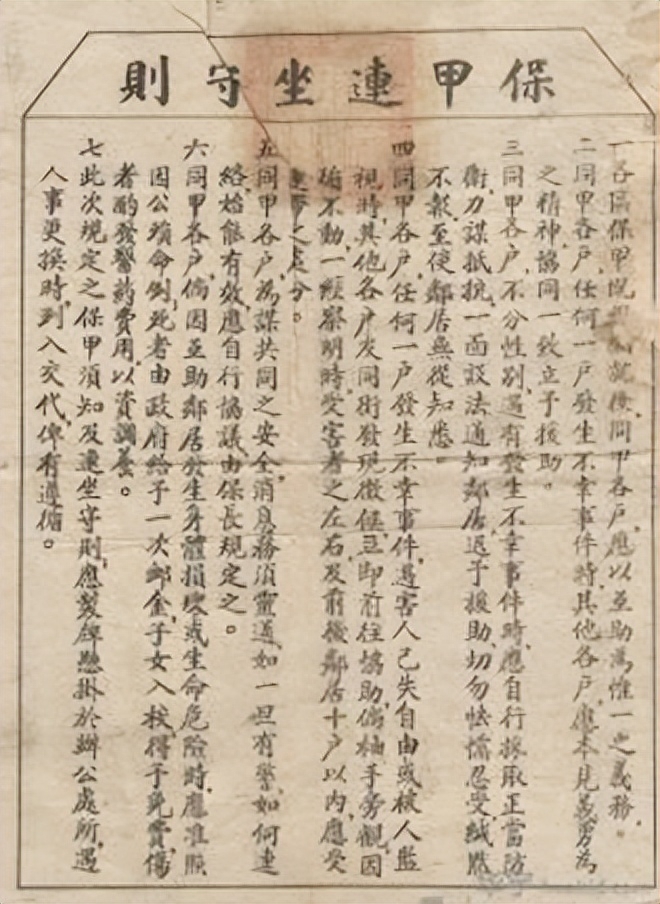 保甲連坐守則
一各區保甲既經編就後同甲各戶應以互助為惟一之義務。
二同甲各戶任何一戶發生不幸事件時其他各戶應本見義勇為
之精神協同一致立予援助。
三同甲各戶不分性別遇有發生不幸事件時應自行採取正當防
衛力謀抵抗一面設法通知鄰居迅予援助切勿怯懦忍受緘默
不報至使鄰居無從知悉。
四同甲各戶任何一戶發生不幸事件遇害人已失自由或被人監
視時其他各戶及同街發現徵候立即前往協助倘袖手旁觀因
循不動一經察明時受害者之左右及前後鄰居十戶以內應受
連帶之處分。
五同甲各戶為謀共同之安全消息務須靈通如一旦有警如何連
絡始能有效應自行協議由保長規定之。
六同甲各戶倘因互助鄰居發生身體損壞或生命危險時應准照
因公殞命例死者由政府給予一次卹金子女入校得予免費傷
者酌發醫藥費用以資調養。
七此次規定之保甲須知及連坐守則應製牌懸掛於辦公處所遇
人事更換時列入交代俾有遵循。